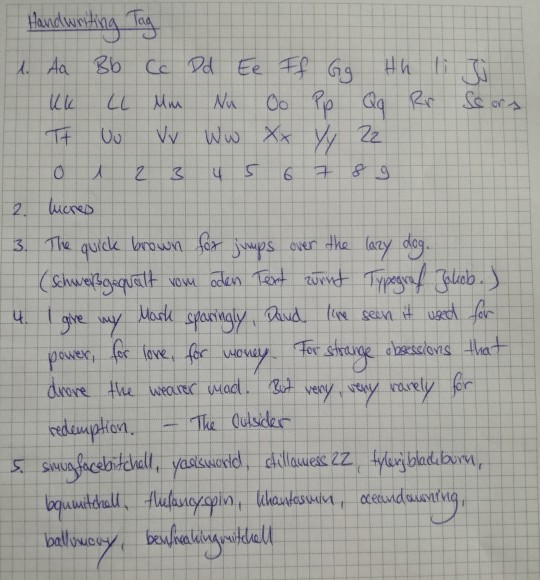 Handwriting Tag
1. Aa Bb Cc Dd Ee Ff Gg Hh Ii Jj
Kk Ll Mm Nn Oo Pp Qq Rr Ss or s
Tt Uu Vv Ww Xx Yy Zz
0 1 2 3 4 5 6 7 8 9
2. lucreo
3. The quick brown fox jumps over the lazy dog.
(Schweißgequält vom öden Text zürnt Typograf Jakob.)
4. I give my Mark sparingly, Daud. I've seen it used for
power, for love, for money. For strange obsessions that
drove the wearer mad. But very, very rarely for
redemption. – The Outsider
5. smugfacebitchell, yaslsworld, tylerjbladeburn,
bgumitchell, thefancyspin, oceandawning,
ballowcoy, benfreakingmitchell